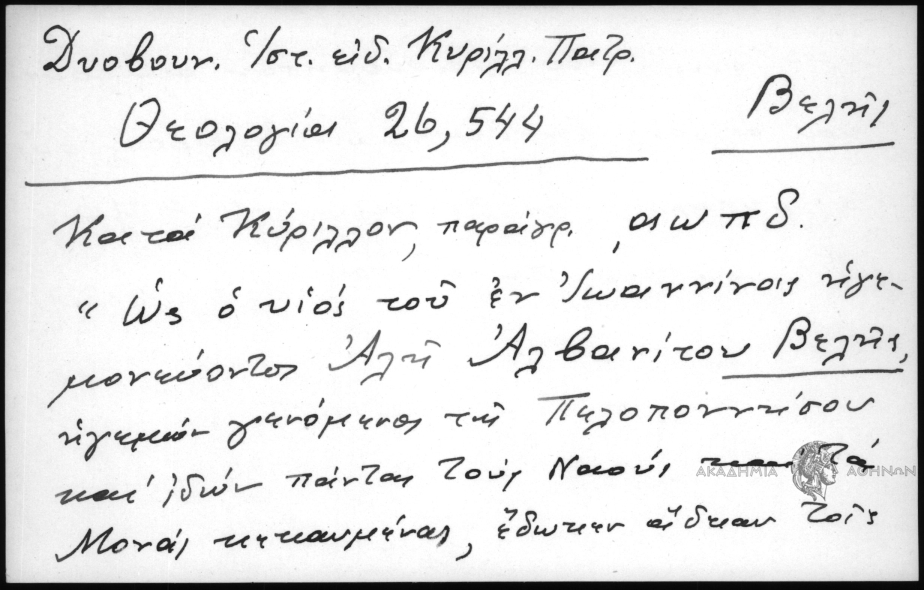 Δυοβουν. Ἱστ. εἰδ. Κυρίλλ. Πατρ.
Θεολογία 26, 544
Βελῆς
Κατά Κύριλλον, παράγρ. ͵αωπδ.
"Ὡς ὁ υἱός τοῦ ἐν Ἰωαννίνοις ἡγε-
μονεύοντος Ἀλῆ Ἀλβανίτου Βελῆς,
ἡγεμών γενόμενος τῆς Πελοποννήσου
καί ἰδών πάντας τούς Ναούς καί τάς
Μονάς κεκαυμένας, ἔδωκεν ἄδειαν τοῖς
ΑΚΑΔΗΜΙΑ ΑΘΗΝΩΝ